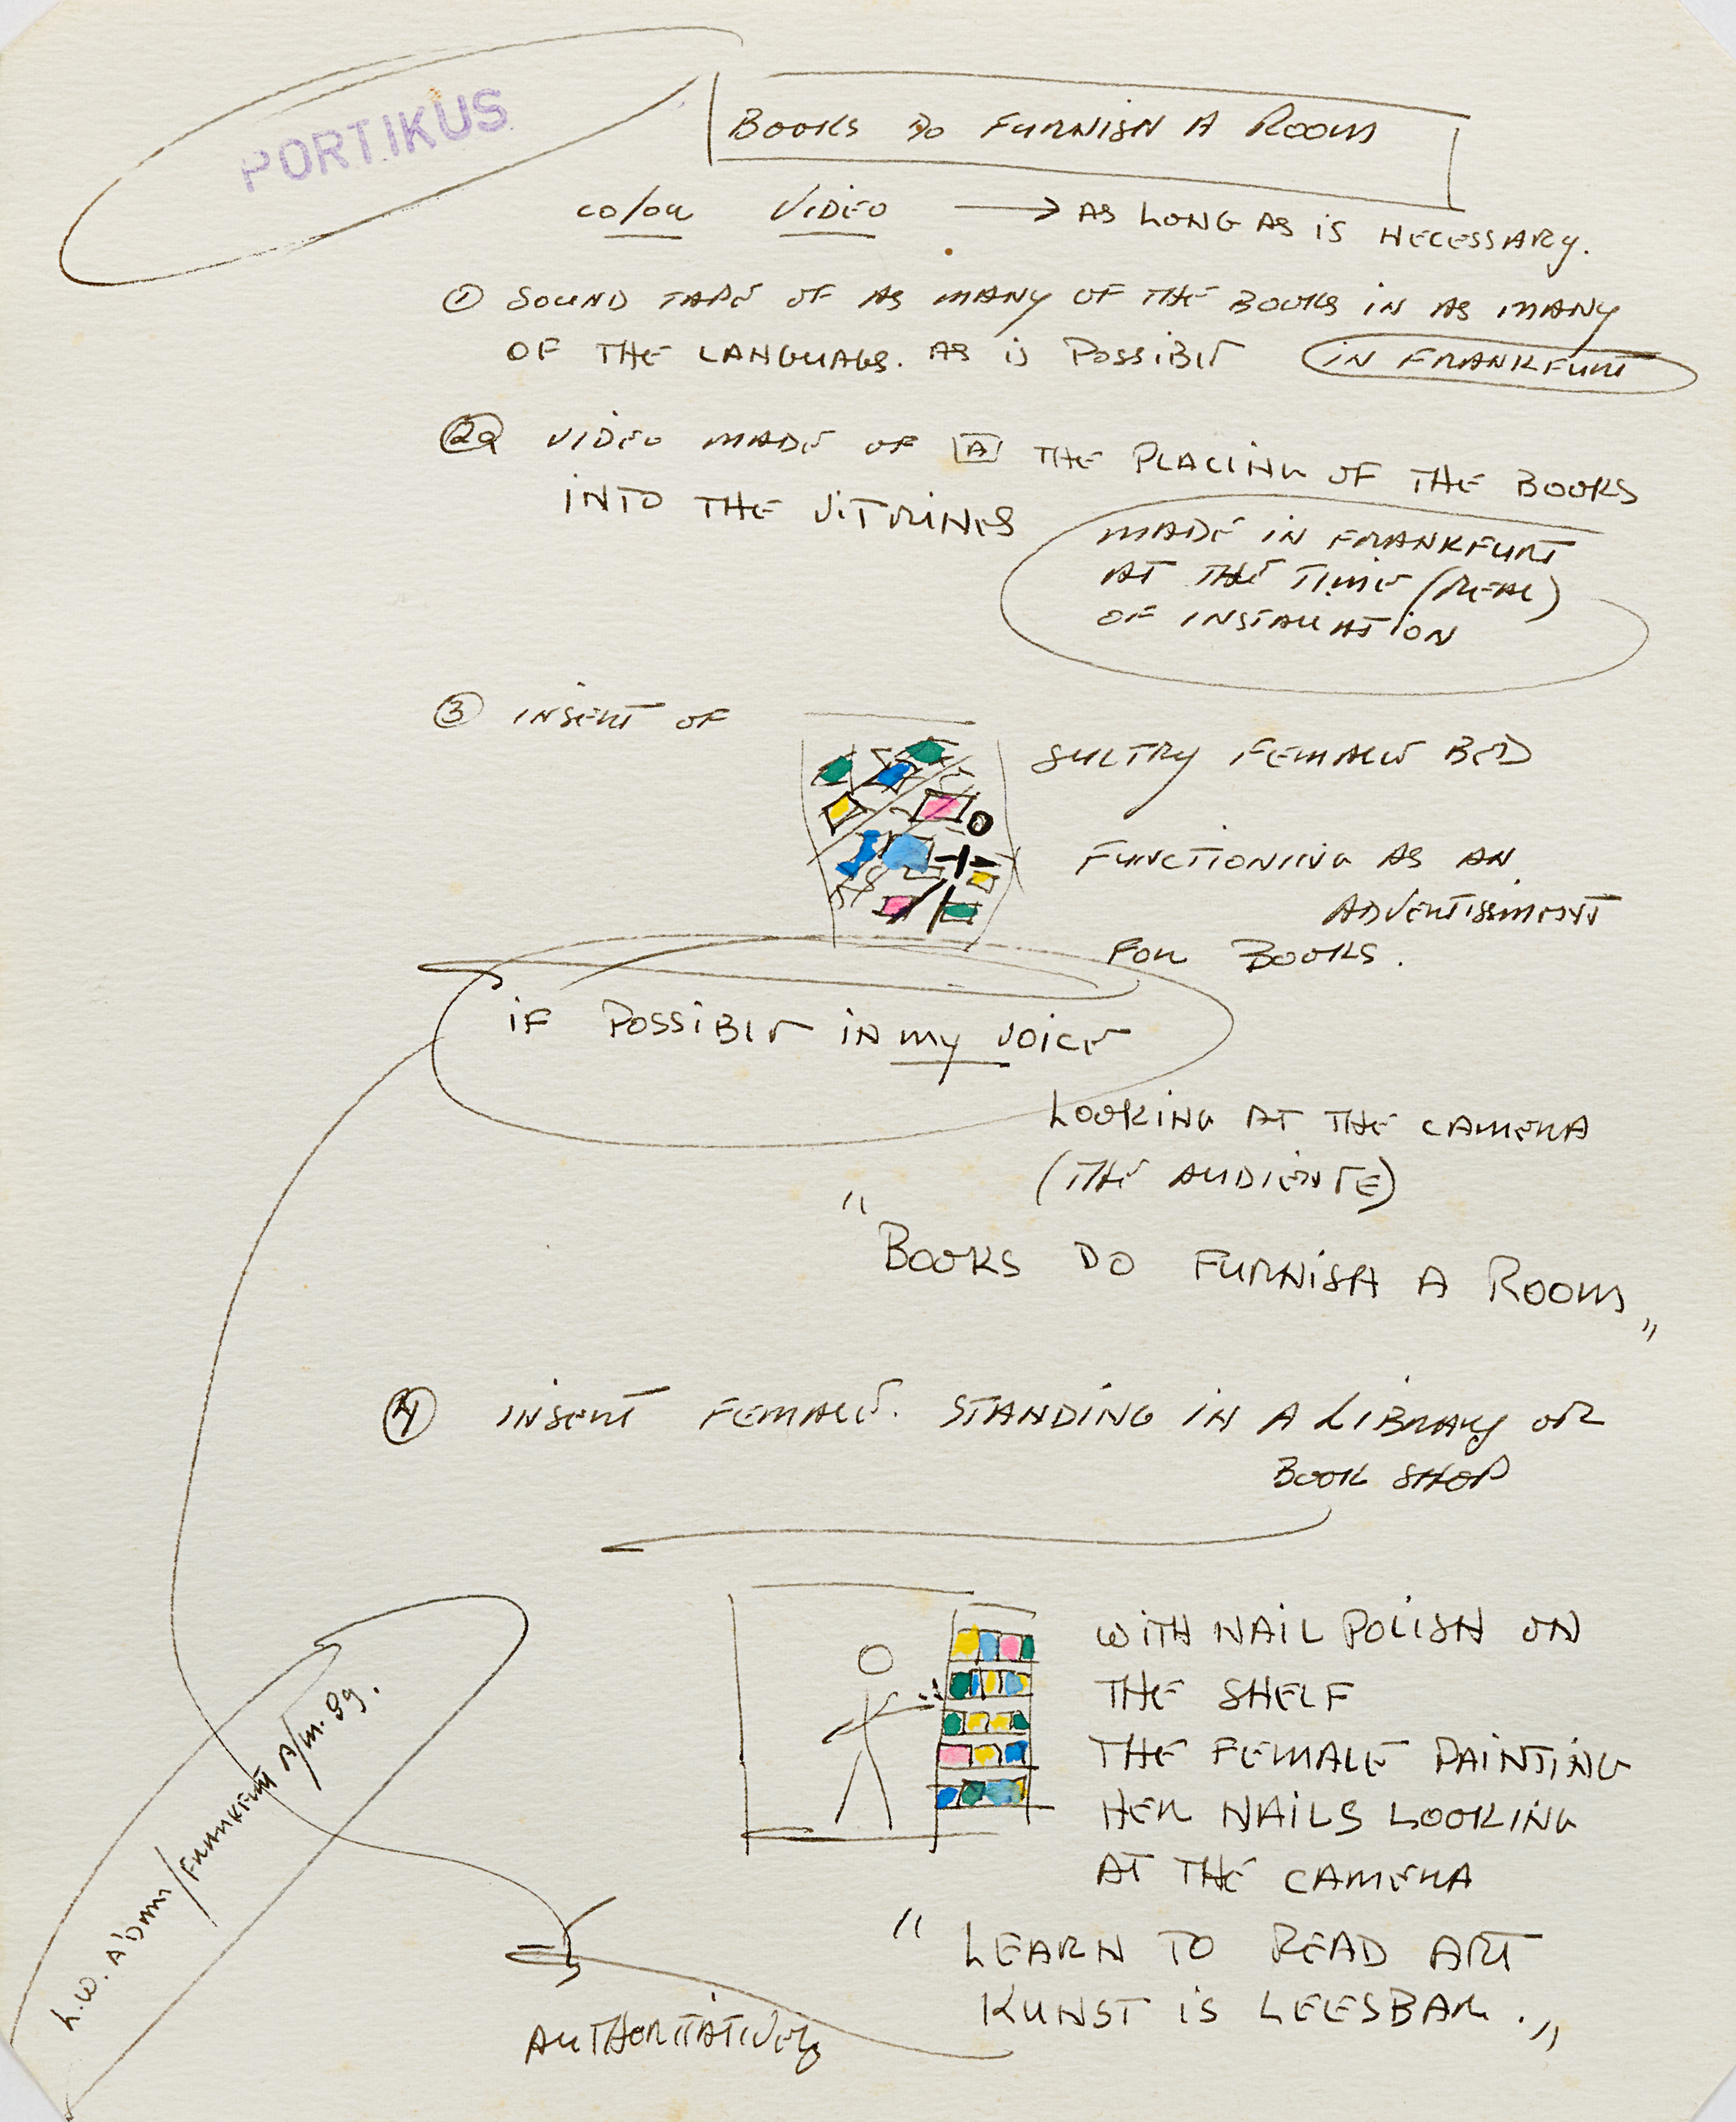 PORTIKUS
BOOKS DO FURNISH A ROOM
COLOR VIDEO → AS LONG AS IS NECESSARY.
① SOUND TAPE OF AS MANY OF THE BOOKS IN AS MANY
OF THE LANGUAGS. AS IS POSSIBLE IN FRANKFURT
VIDEO MADE OF A THE PLACING OF THE BOOKS
INTO THE VITRINES
MADE IN FRANKFURT
AT THE TIME (REAL)
OF INSTALLATION
③ INSERT OF
SULTRY FEMALE
FUNCTIONING AS AN
ADVERTISSMENT
FOR BOOKS.
IF POSSIBLE IN MY VOICE
LOOKING AT THE CAMERA
(THE AUDIENCE)
"BOOKS DO FURNISH A ROOM"
④ INSERT FEMALE. STANDING IN A LIBRARY OR
BOOK SHOP
WITH NAIL POLISH ON
THE SHELF
THE FEMALE PAINTING
HER NAILS LOOKING
AT THE CAMERA
"LEARN TO READ ART
KUNST IS LEESBAR."
AUTHORITATIVELY
L.W. A'DAM/FRANKFURT A/M. 89.